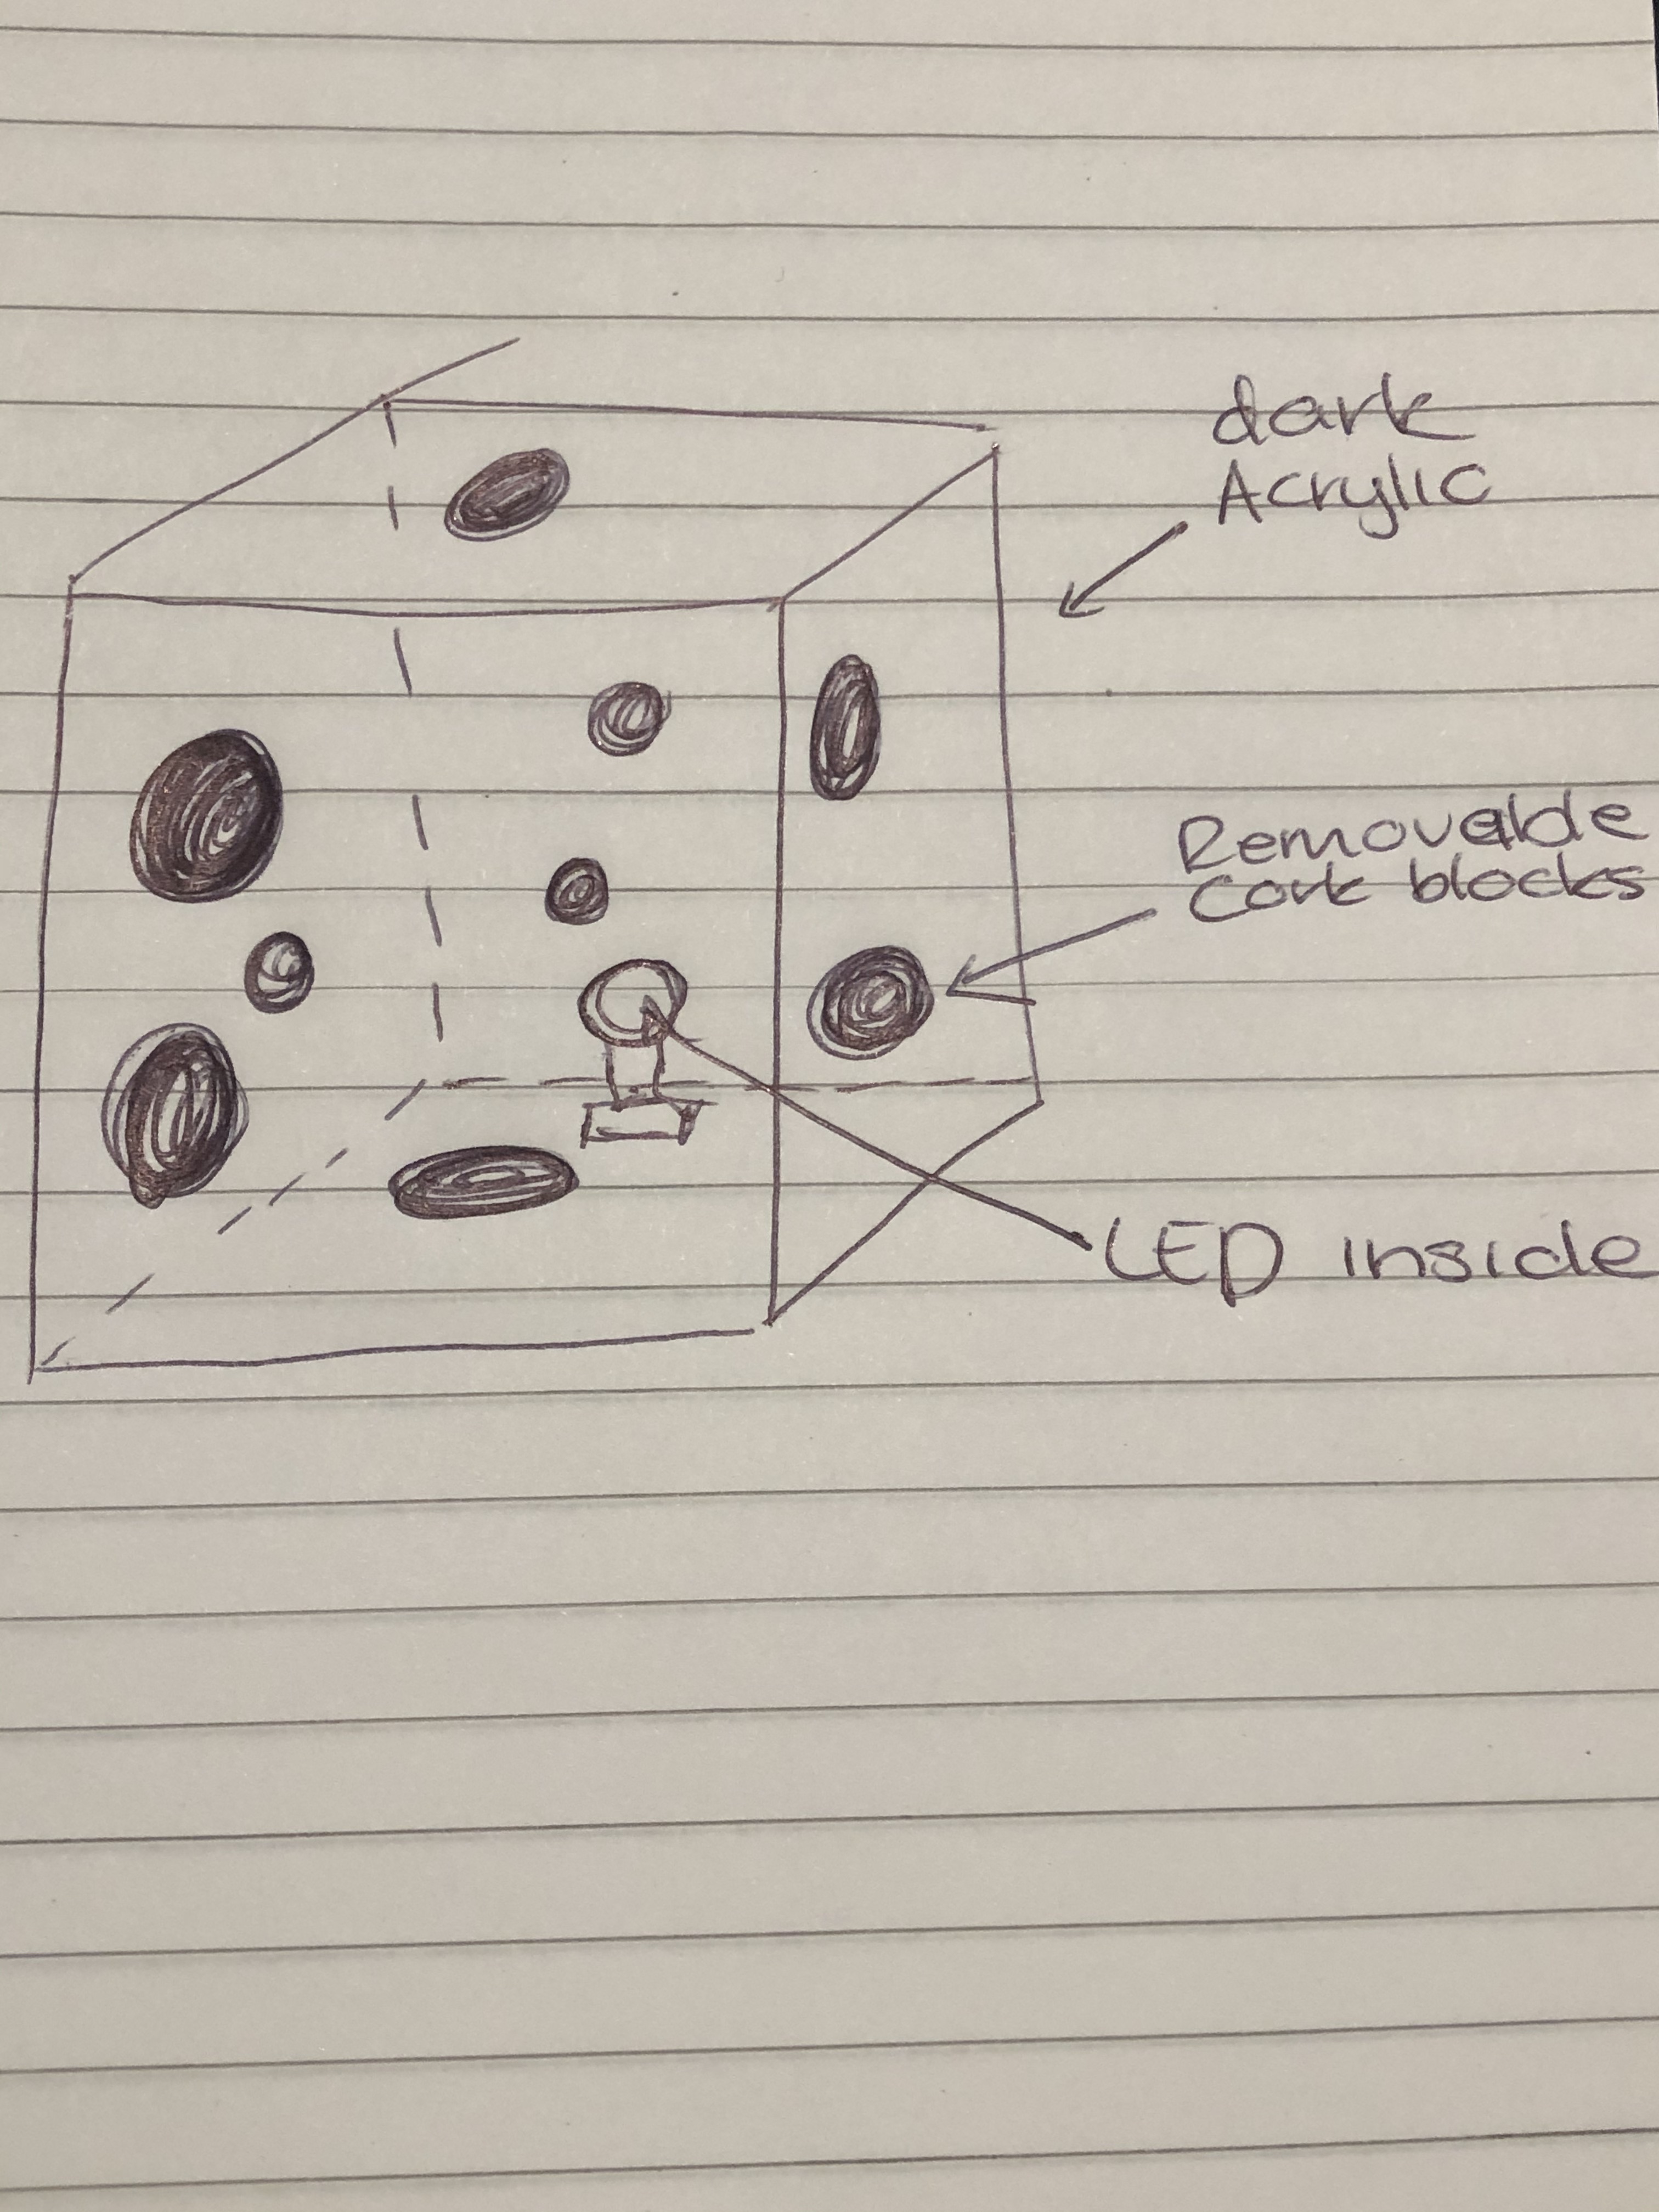 dark
Acrylic
Removable
Cork blocks
LED inside